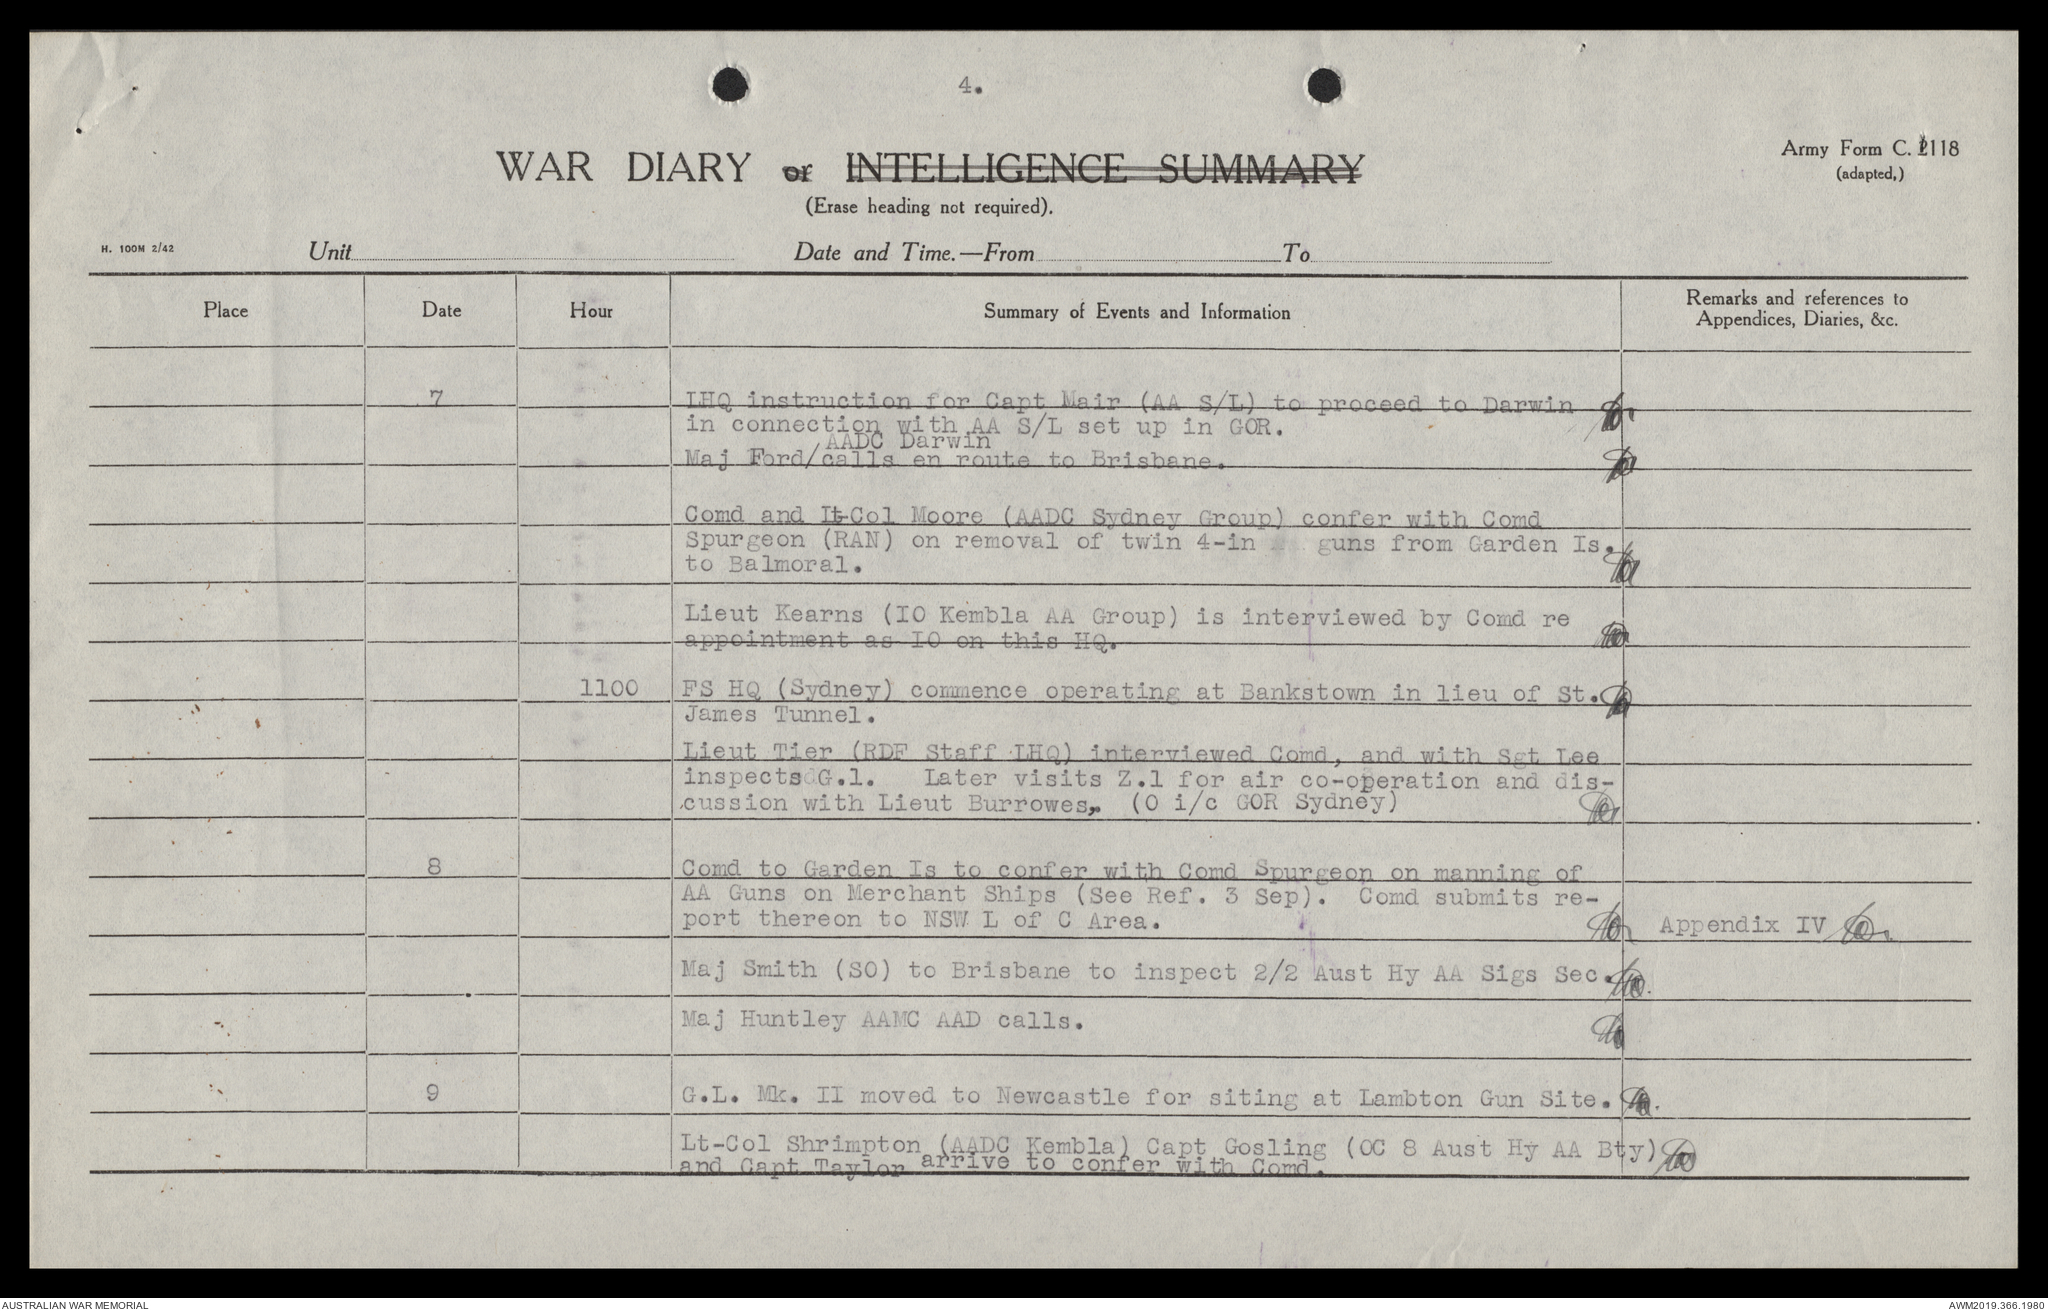 4.
WAR DIARY or INTELLIGENCE SUMMARY
(Erase heading not required).
Army Form C. 2118
(adapted,)
H. 100M 2/42
Unit
Date and Time.—From To
Place Date Hour Summary of Events and Information Remarks and references to
Appendices, Diaries, &c.
7 LHQ instruction for Capt Mair (AA S/L) to proceed to Darwin
in connection with AA S/L set up in GOR.
AADC Darwin
Maj Ford/calls en route to Brisbane.
Comd and Lt-Col Moore (AADC Sydney Group) confer with Comd
Spurgeon (RAN) on removal of twin 4-in guns from Garden Is.
to Balmoral.
Lieut Kearns (IO Kembla AA Group) is interviewed by Comd re
appointment as IO on this HQ.
1100 FS HQ (Sydney) commence operating at Bankstown in lieu of St.
James Tunnel.
Lieut Tier (RDF Staff LHQ) interviewed Comd, and with Sgt Lee
inspects G.1. Later visits Z.1 for air co-operation and dis-
cussion with Lieut Burrowes, (O i/c GOR Sydney)
8 Comd to Garden Is to confer with Comd Spurgeon on manning of
AA Guns on Merchant Ships (See Ref. 3 Sep). Comd submits re-
port thereon to NSW L of C Area. Appendix IV
Maj Smith (SO) to Brisbane to inspect 2/2 Aust Hy AA Sigs Sec.
Maj Huntley AAMC AAD calls.
9 G.L. Mk. II moved to Newcastle for siting at Lambton Gun Site.
Lt-Col Shrimpton (AADC Kembla) Capt Gosling (OC 8 Aust Hy AA Bty)
and Capt Taylor arrive to confer with Comd.
AUSTRALIAN WAR MEMORIAL
AWM2019.366.1980